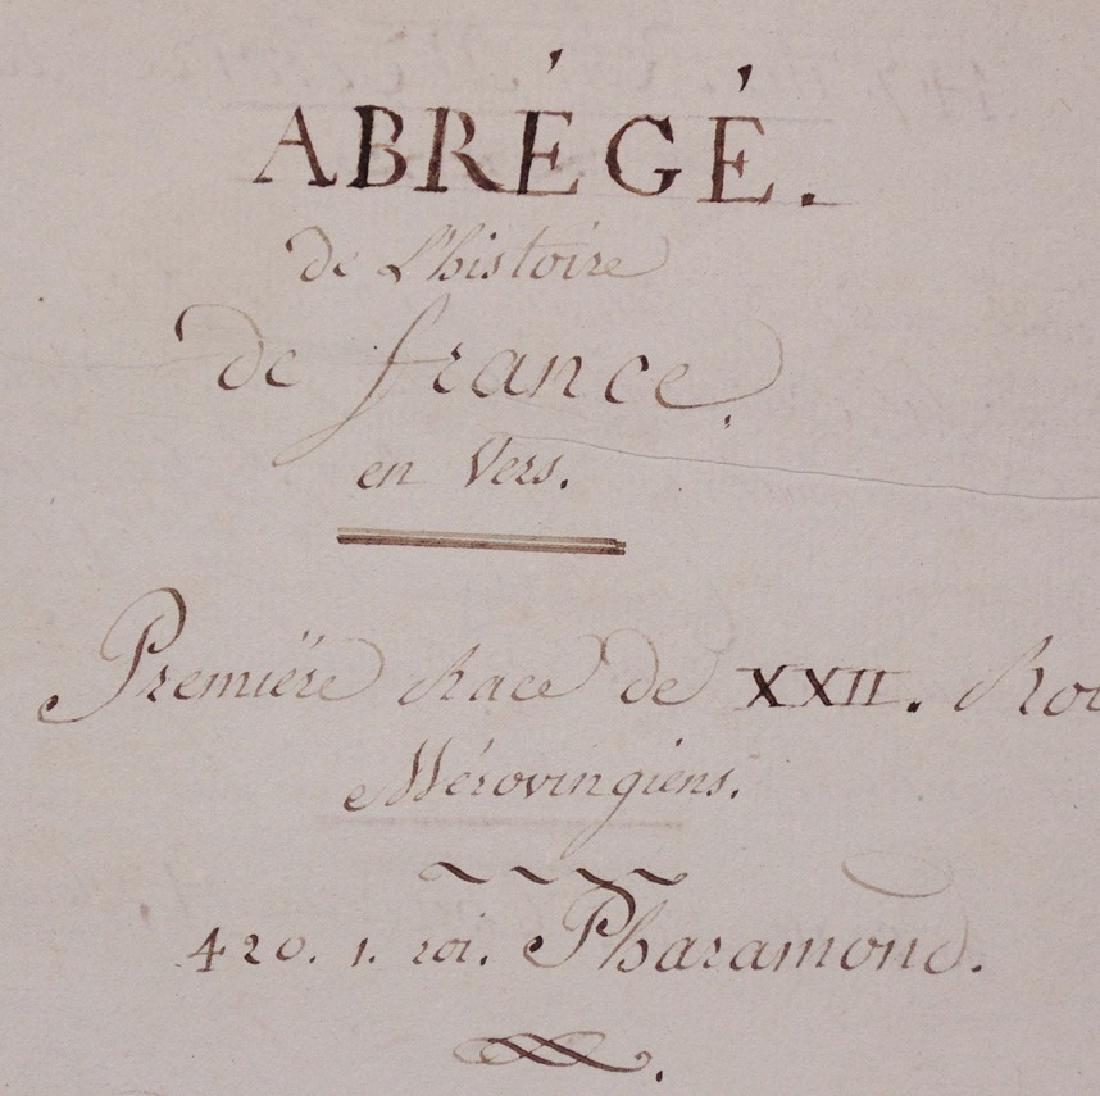 ABRÉGÉ.
de L'histoire
de france.
en Vers.
Premiëre Race de XXII. Roi
Mérovingiens.
420. 1. roi. Pharamond.